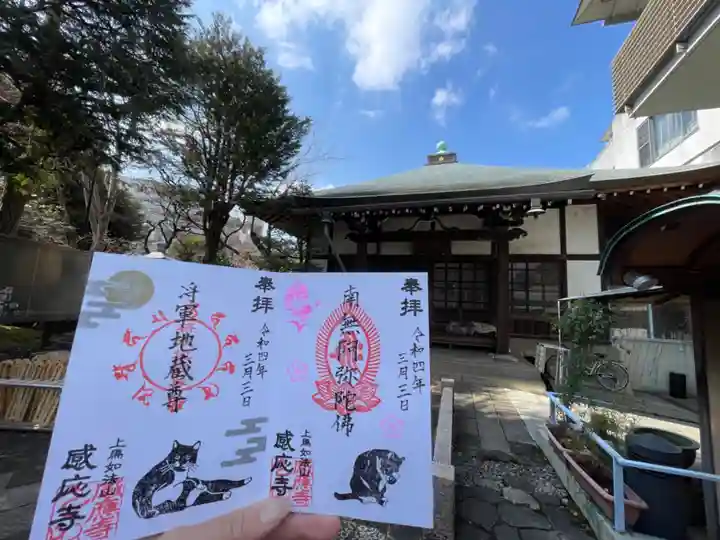 奉拝
令和四年
三月三日
将軍地蔵尊
上馬如法山
感応寺
奉拝
令和四年
三月三日
南無阿弥陀佛
上馬如法山
感応寺